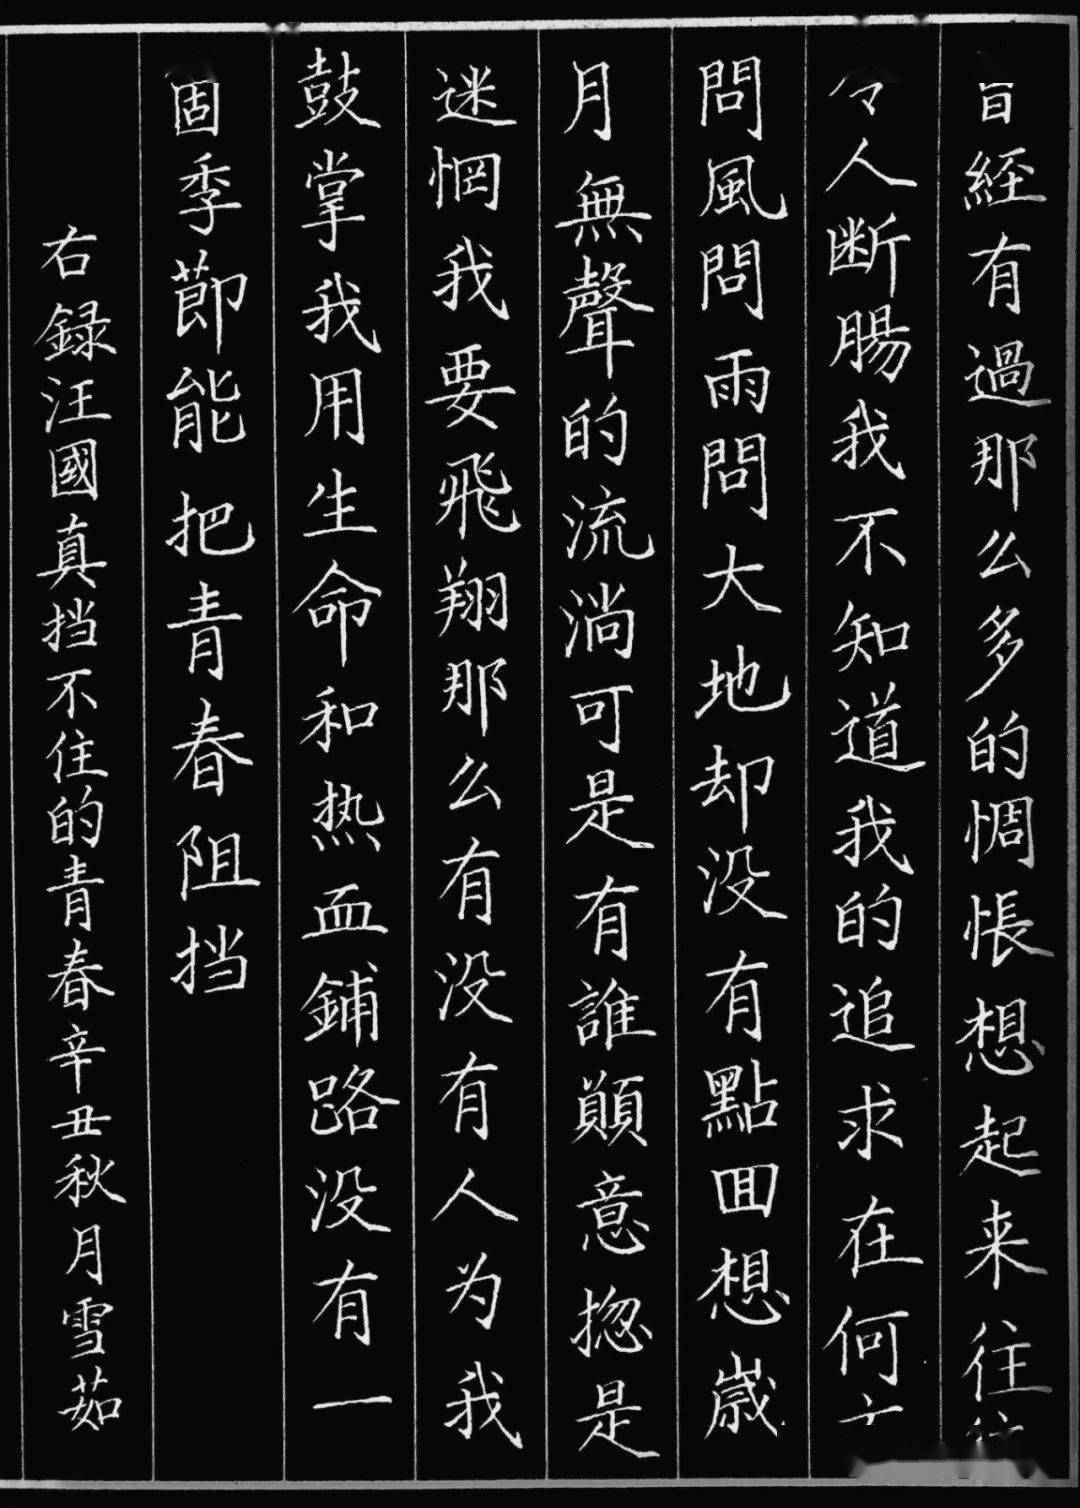 經有過那么多的惆悵想起来往
人断腸我不知道我的追求在何
問風問雨問大地却没有點囬想歳
月無聲的流淌可是有誰顚意揔是
迷惘我要飛翔那么有没有人为我
鼓掌我用生命和热血鋪路没有一
固季莭能把青春阻挡
右録汪國真挡不住的青春辛丑秋月雪茹